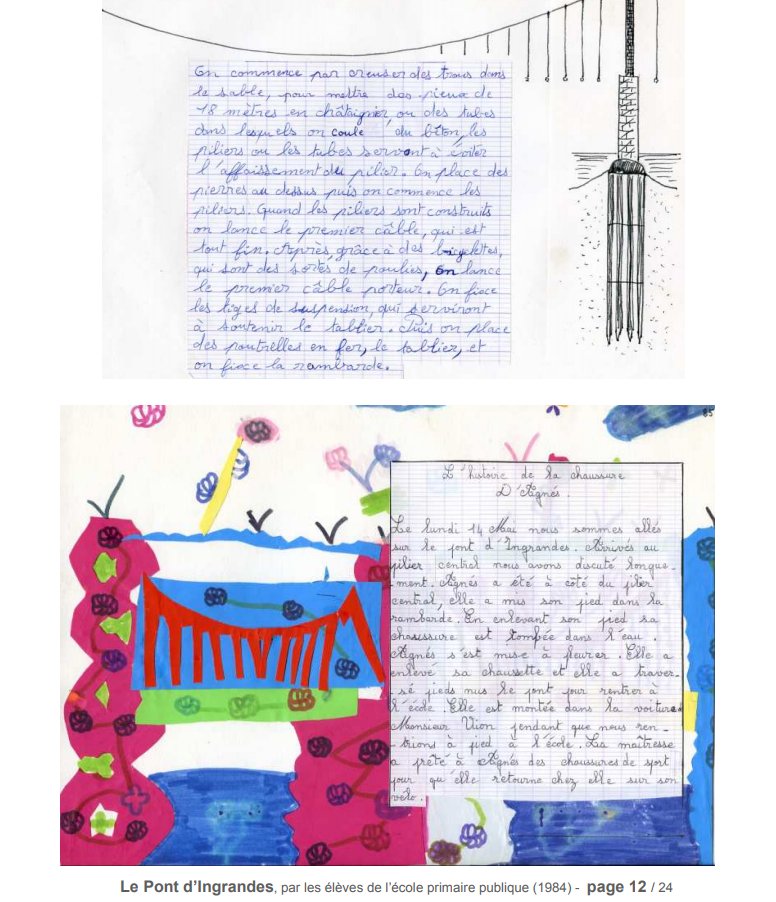 On commence par creuser des trous dans
le sable, pour mettre des pieux de
18 mètres en châtaignier, ou des tubes
dans lesquels on coule du béton, les
piliers ou les tubes servent à éviter
l'affaissement du pilier. On place des
pierres au dessus puis on commence les
piliers. Quand les piliers sont construits
on lance le premier câble, qui est
tout fin. Après, grâce à des bicyclettes,
qui sont des sortes de poulies, on lance
le premier câble porteur. On fixe
les tiges de suspension, qui serviront
à soutenir le tablier. Puis on place
des poutrelles en fer, le tablier, et
on fixe la rambarde.
85
L'histoire de la chaussure
D'Agnés.
Le lundi 14 Mai nous sommes allés
sur le pont d'Ingrandes. Arrivés au
pilier central nous avons discuté longue-
-ment. Agnés a été à côté du pilier
central, elle a mis son pied dans la
rambarde. En enlevant son pied sa
chaussure est tombée dans l'eau.
Agnés s'est mise à pleurer. Elle a
enlevé sa chaussette et elle a traver-
-sé pieds nus le pont pour rentrer à
l'école. Elle est montée dans la voiture
Monsieur Vion pendant que nous ren-
-trions à pied à l'école. La maîtresse
a prêté à Agnés des chaussures de sport
pour qu'elle retourne chez elle sur son
vélo.
Le Pont d'Ingrandes, par les élèves de l'école primaire publique (1984) - page 12 / 24